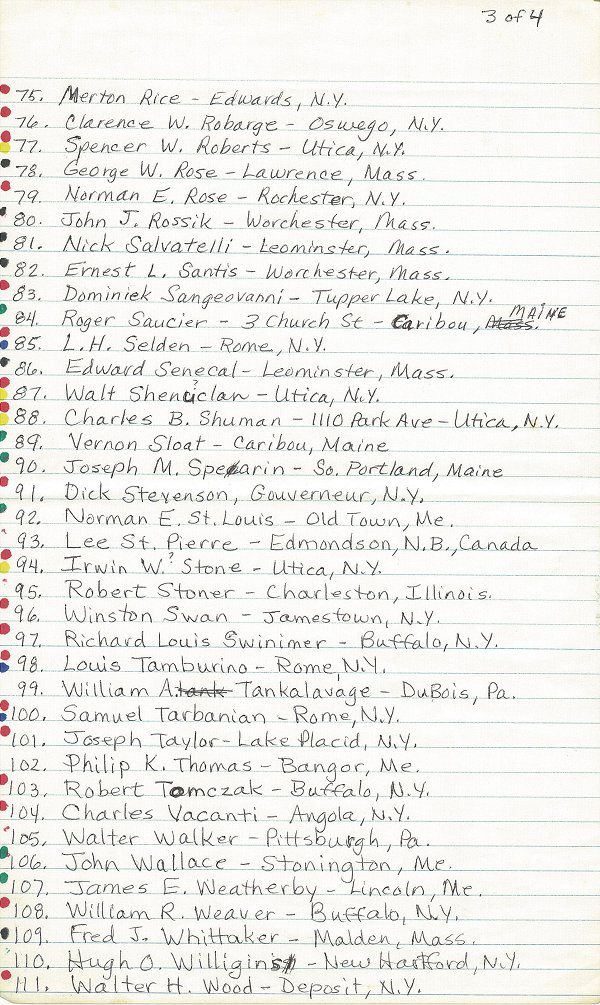 3 of 4
75. Merton Rice - Edwards, N.Y.
76. Clarence W. Robarge - Oswego, N.Y.
77. Spencer W. Roberts - Utica, N.Y.
78. George W. Rose - Lawrence, Mass.
79. Norman E. Rose - Rochester, N.Y.
80. John J. Rossik - Worchester, Mass.
81. Nick Salvatelli - Leominster, Mass.
82. Ernest L. Santis - Worchester, Mass.
83. Dominiek Sangeovanni - Tupper Lake, N.Y.
84. Roger Saucier - 3 Church St - Caribou, Mass. MAINE
85. L.H. Selden - Rome, N.Y.
86. Edward Senecal - Leominster, Mass.
87. Walt Shenuclan - Utica, N.Y.
88. Charles B. Shuman - 1110 Park Ave - Utica, N.Y.
89. Vernon Sloat - Caribou, Maine
90. Joseph M. Spearin - So. Portland, Maine
91. Dick Stevenson, Gouverneur, N.Y.
92. Norman E. St. Louis - Old Town, Me.
93. Lee St. Pierre - Edmondson, N.B., Canada
94. Irwin W.? Stone - Utica, N.Y.
95. Robert Stoner - Charleston, Illinois.
96. Winston Swan - Jamestown, N.Y.
97. Richard Louis Swinimer - Buffalo, N.Y.
98. Louis Tamburino - Rome, N.Y.
99. William A. tank Tankalavage - DuBois, Pa.
100. Samuel Tarbanian - Rome, N.Y.
101. Joseph Taylor - Lake Placid, N.Y.
102. Philip K. Thomas - Bangor, Me.
103. Robert Tomczak - Buffalo, N.Y.
104. Charles Vacanti - Angola, N.Y.
105. Walter Walker - Pittsburgh, Pa.
106. John Wallace - Stonington, Me.
107. James E. Weatherby - Lincoln, Me.
108. William R. Weaver - Buffalo, N.Y.
109. Fred J. Whittaker - Malden, Mass.
110. Hugh O. - New Hartford, N.Y.
111. Walter H. Wood - Deposit, N.Y.